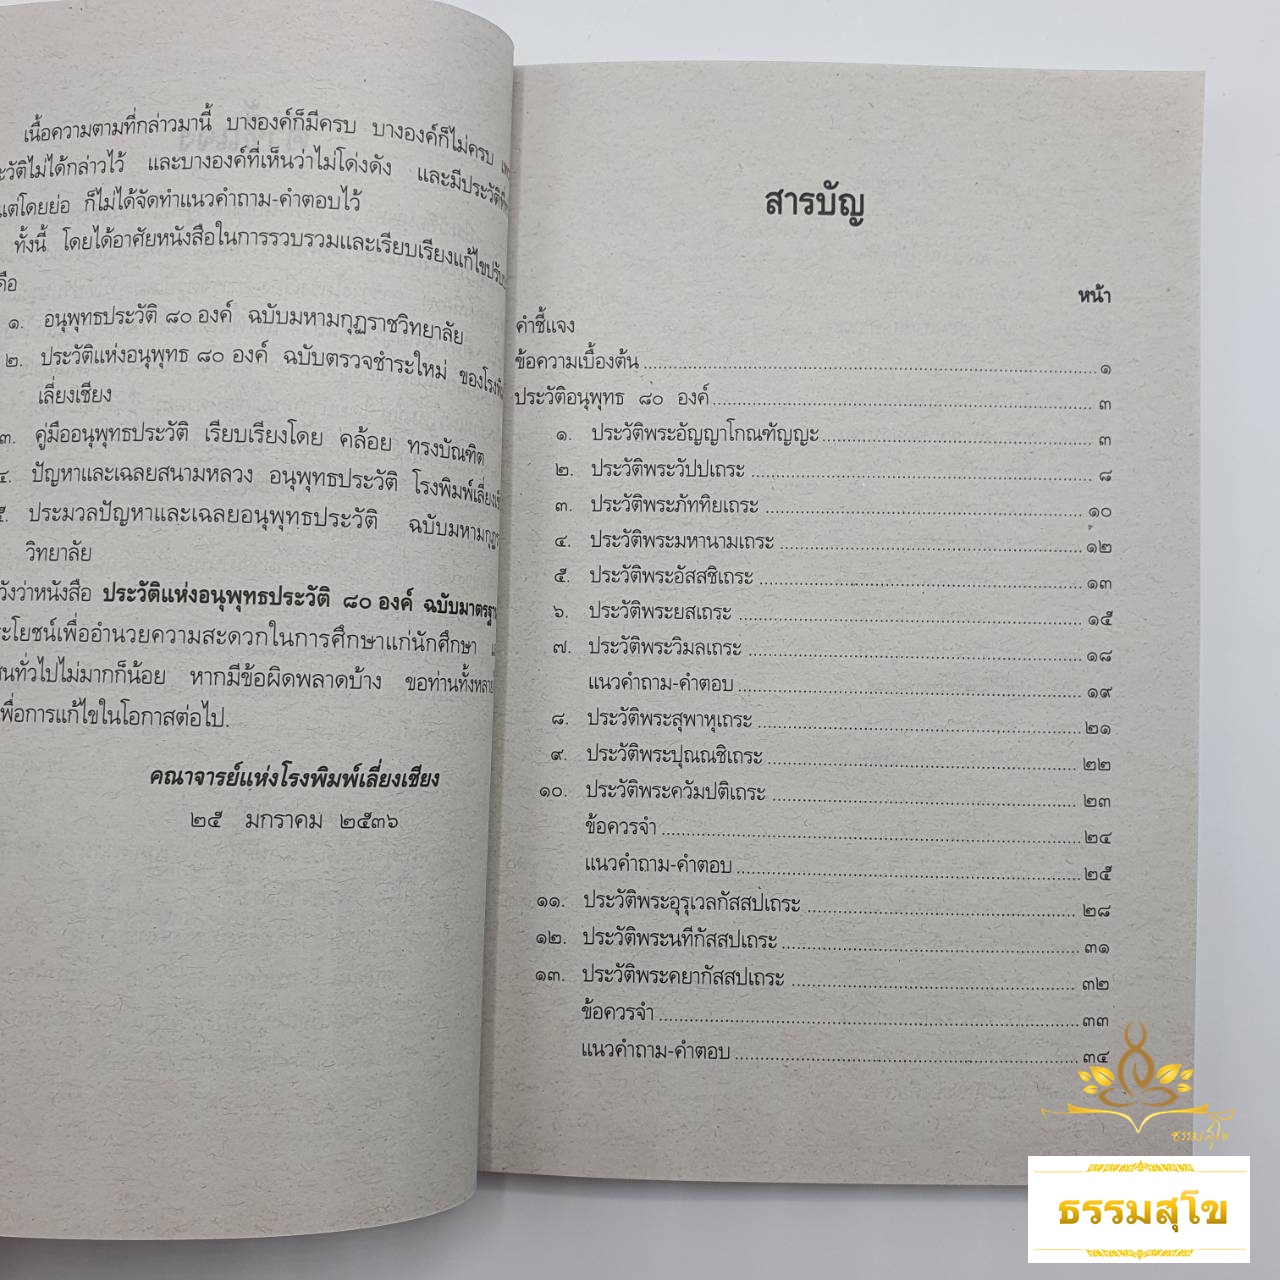 เนื้อความตามที่กล่าวมานี้ บางองค์ก็มีครบ บางองค์ก็ไม่ครบ
ไม่ได้กล่าวไว้ และบางองค์ที่เห็นว่าไม่โด่งดัง และมีประวัติ
แต่โดยย่อ ก็ไม่ได้จัดทำแนวคำถาม-คำตอบไว้
ทั้งนี้ โดยได้อาศัยหนังสือในการรวบรวมและเรียบเรียงแก้ไขปรับ
คือ
๑. อนุพุทธประวัติ ๘๐ องค์ ฉบับมหามกุฏราชวิทยาลัย
๒. ประวัติแห่งอนุพุทธ ๘๐ องค์ ฉบับตรวจชำระใหม่ ของโรงพิ
เลี่ยงเชียง
๓. คู่มืออนุพุทธประวัติ เรียบเรียงโดย คล้อย ทรงบัณฑิต
๔. ปัญหาและเฉลยสนามหลวง อนุพุทธประวัติ โรงพิมพ์เลี่ยงเ
๕. ประมวลปัญหาและเฉลยอนุพุทธประวัติ ฉบับมหามกุฏร
วิทยาลัย
วังว่าหนังสือ ประวัติแห่งอนุพุทธประวัติ ๘๐ องค์ ฉบับมาตรฐาน
ระโยชน์เพื่ออำนวยความสะดวกในการศึกษาแก่นักศึกษา
ชนทั่วไปไม่มากก็น้อย หากมีข้อผิดพลาดบ้าง ขอท่านทั้งหลาย
เพื่อการแก้ไขในโอกาสต่อไป.
คณาจารย์แห่งโรงพิมพ์เลี่ยงเชียง
๒๕ มกราคม ๒๕๓๖
สารบัญ
หน้า
คำชี้แจง
ข้อความเบื้องต้น ๑
ประวัติอนุพุทธ ๘๐ องค์ ๓
๑. ประวัติพระอัญญาโกณฑัญญะ ๓
๒. ประวัติพระวัปปเถระ ๘
๓. ประวัติพระภัททิยเถระ ๑๐
๔. ประวัติพระมหานามเถระ ๑๒
๕. ประวัติพระอัสสชิเถระ ๑๓
๖. ประวัติพระยสเถระ ๑๕
๗. ประวัติพระวิมลเถระ ๑๘
แนวคำถาม-คำตอบ ๑๙
๘. ประวัติพระสุพาหุเถระ ๒๑
๙. ประวัติพระปุณณชิเถระ ๒๒
๑๐. ประวัติพระควัมปติเถระ ๒๓
ข้อควรจำ ๒๔
แนวคำถาม-คำตอบ ๒๕
๑๑. ประวัติพระอุรุเวลกัสสปเถระ ๒๘
๑๒. ประวัติพระนทีกัสสปเถระ ๓๑
๑๓. ประวัติพระคยากัสสปเถระ ๓๒
ข้อควรจำ ๓๓
แนวคำถาม-คำตอบ ๓๔
ธรรมสุโข
ธรรมสุโข